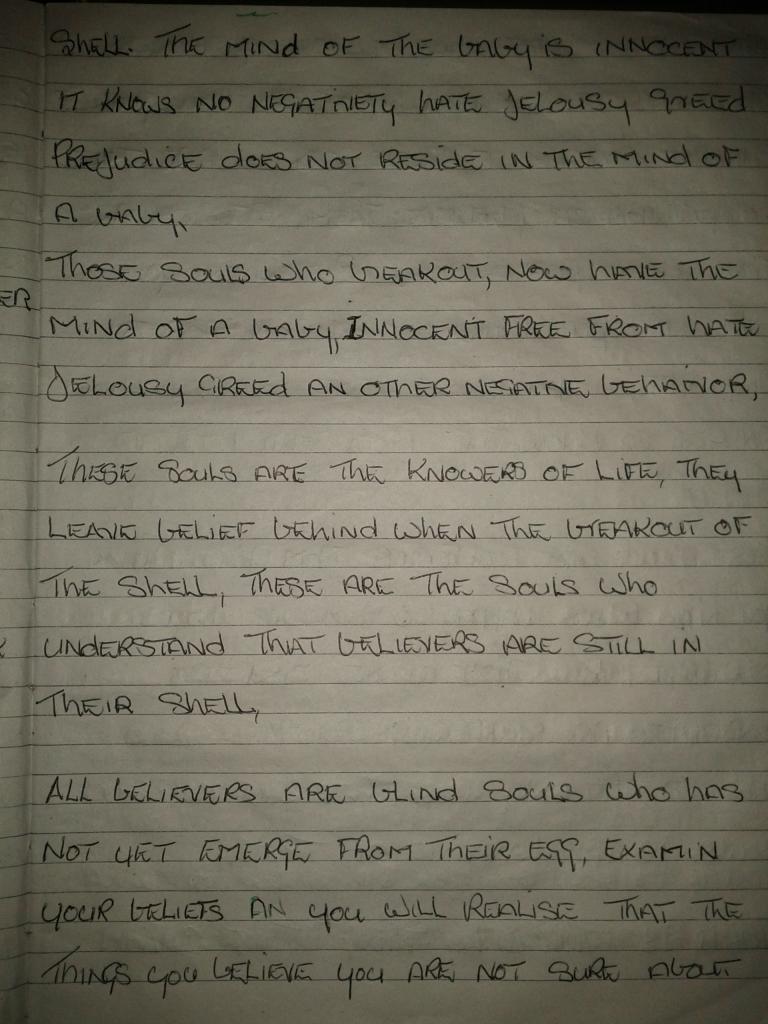 Shell. THE MIND OF THE BABY IS INNOCENT
IT KNOWS NO NEGATIVIETY HATE JELOUSY GREED
PREJUDICE DOES NOT RESIDE IN THE MIND OF
A BABY,
THOSE SOULS WHO BREAKOUT, NOW HAVE THE
ER
MIND OF A BABY, INNOCENT FREE FROM HATE
JELOUSY GREED AN OTHER NEGATIVE BEHAVIOR,
THESE SOULS ARE THE KNOWERS OF LIFE, THEY
LEAVE BELIEF BEHIND WHEN THE BREAKOUT OF
THE SHELL, THESE ARE THE SOULS WHO
UNDERSTAND THAT BELIEVERS ARE STILL IN
THEIR SHELL,
ALL BELIEVERS ARE BLIND SOULS WHO HAS
NOT YET EMERGE FROM THEIR EGG, EXAMIN
YOUR BELIEFS AN YOU WILL REALISE THAT THE
THINGS YOU BELIEVE YOU ARE NOT SURE ABOUT